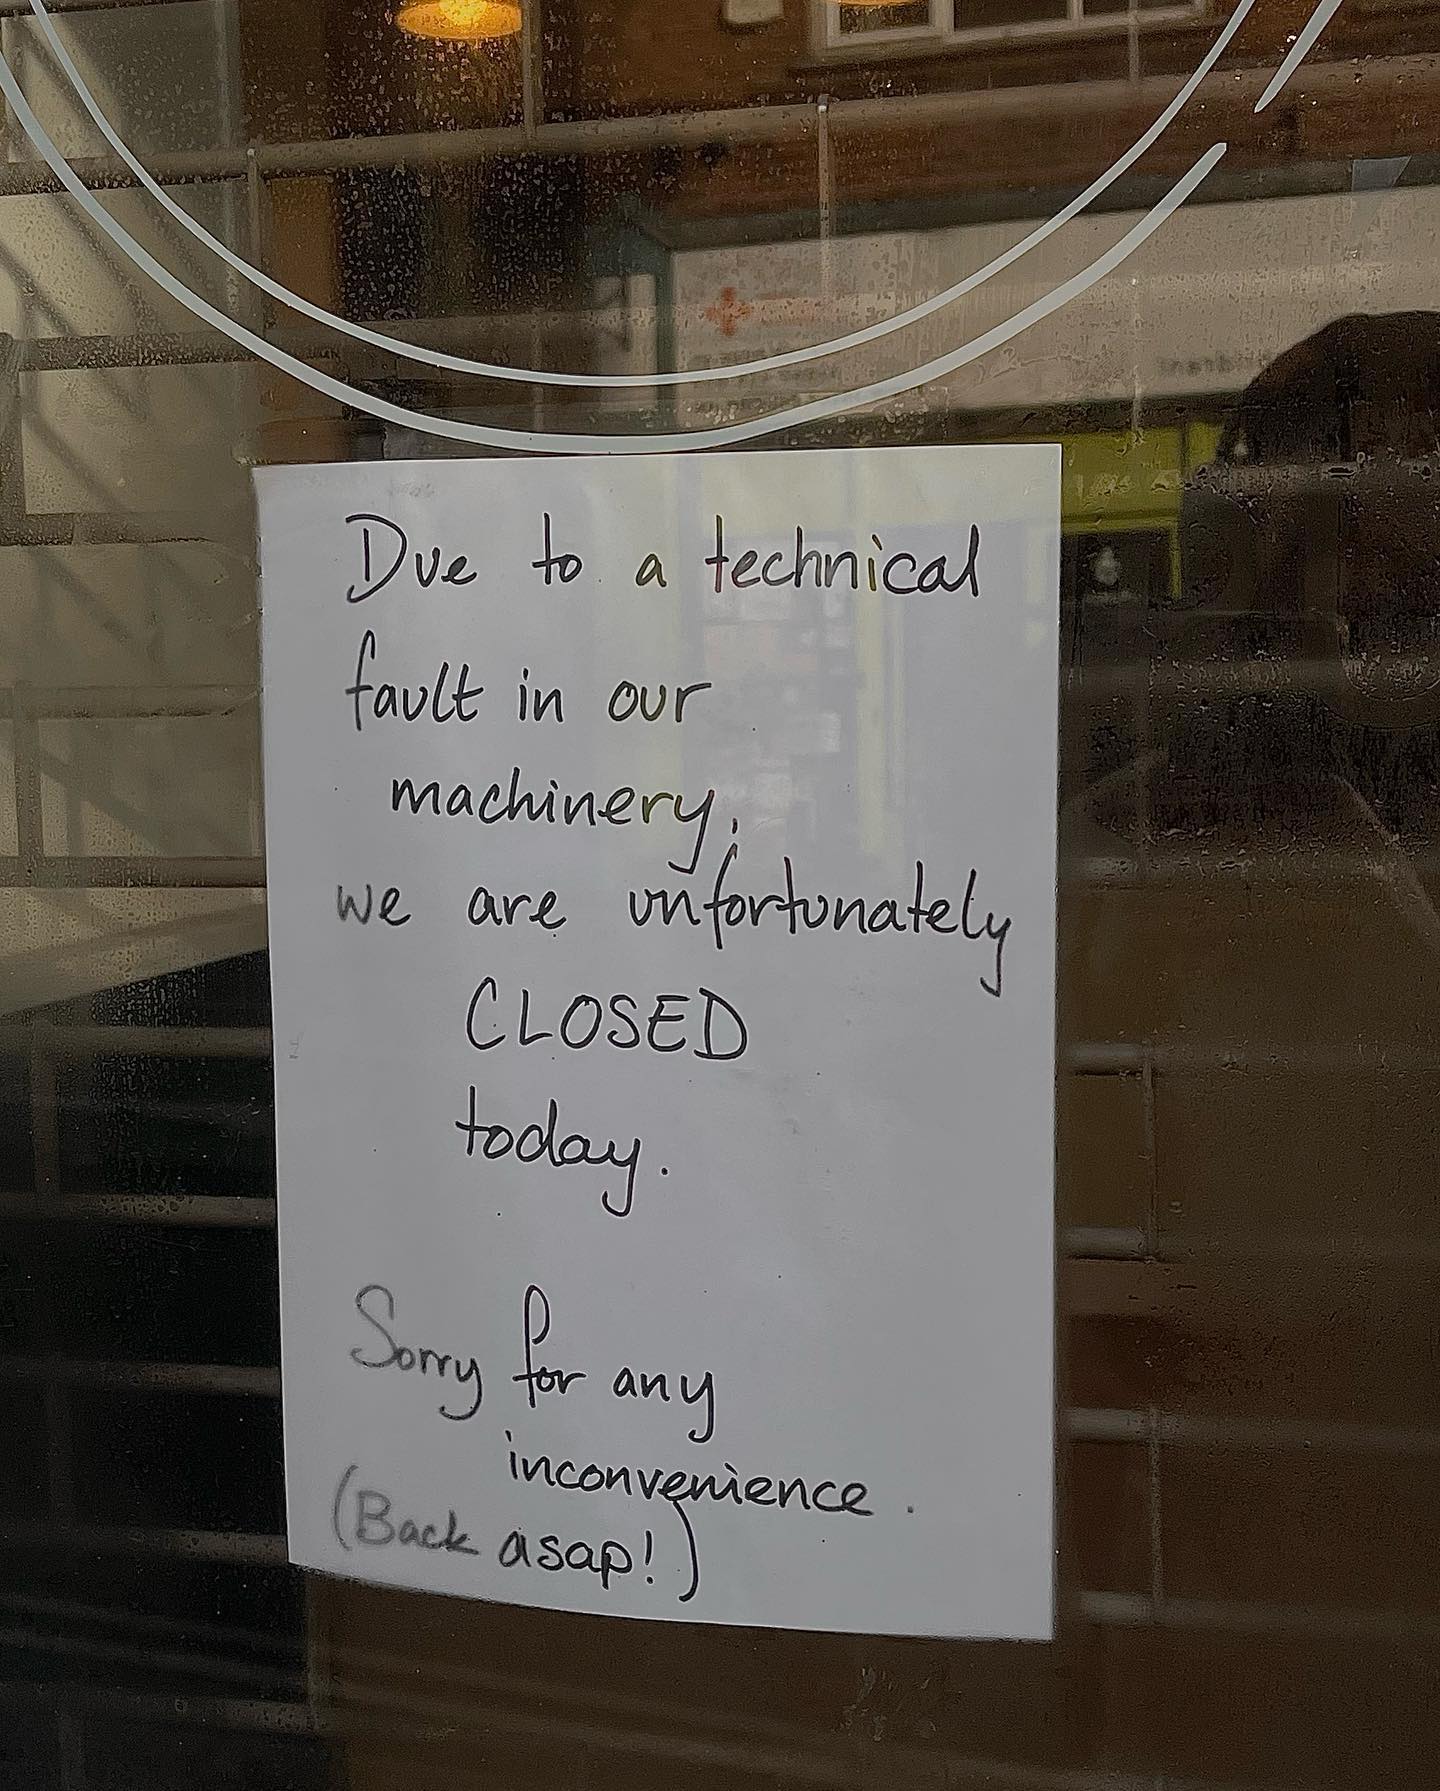 Due to a technical
fault in our
machinery,
we are unfortunately
CLOSED
today.
Sorry for any
inconvenience.
(Back asap!)